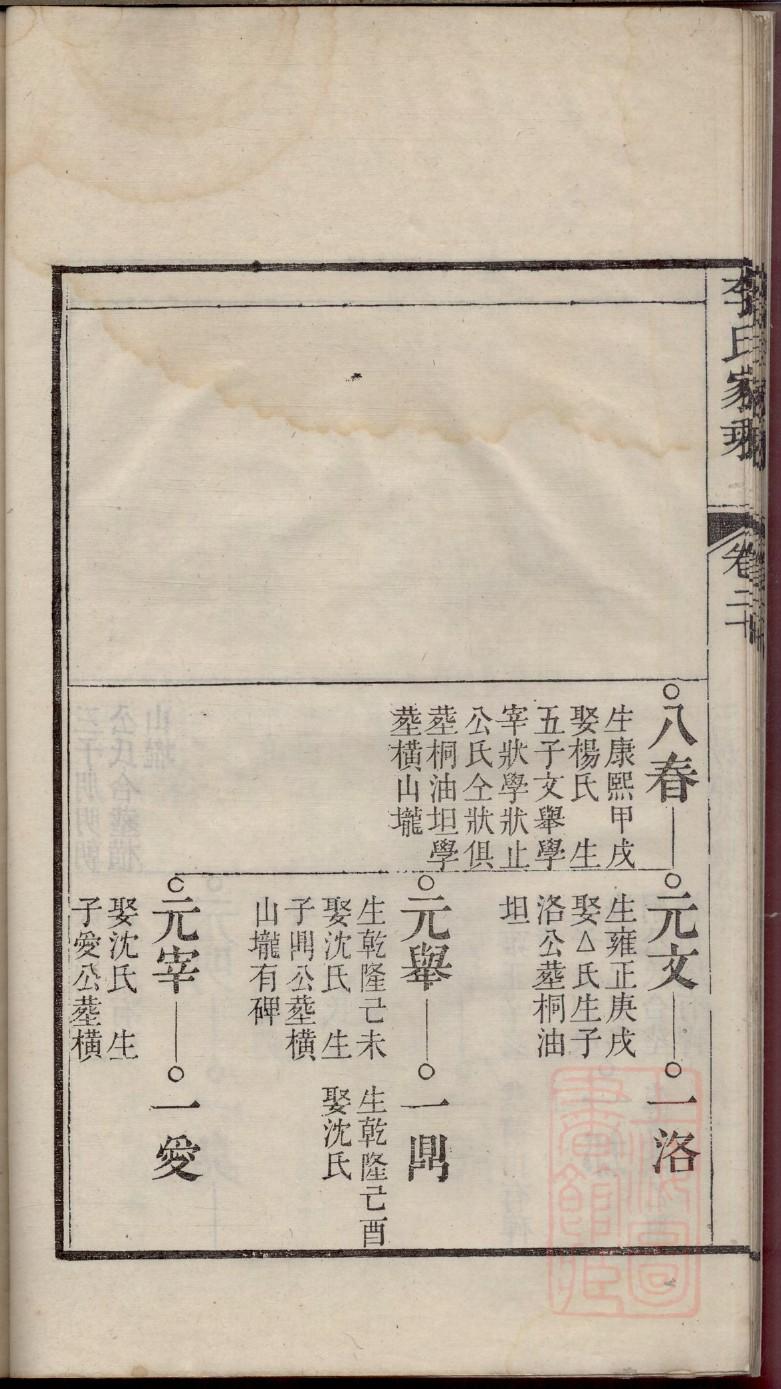 李氏家乘
卷二十
八春
生康熙甲戌
娶楊氏 生
五子文舉學
宰狀學狀止
公氏仝狀俱
塟桐油坦學
塟橫山壠
元文
生雍正庚戌
娶△氏生子
洛公塟桐油
坦
一洛
元舉
生乾隆己未
娶沈氏 生
子鼎公塟橫
山壠有碑
一鼎
生乾隆己酉
娶沈氏
元宰
娶沈氏 生
子愛公塟橫
一愛